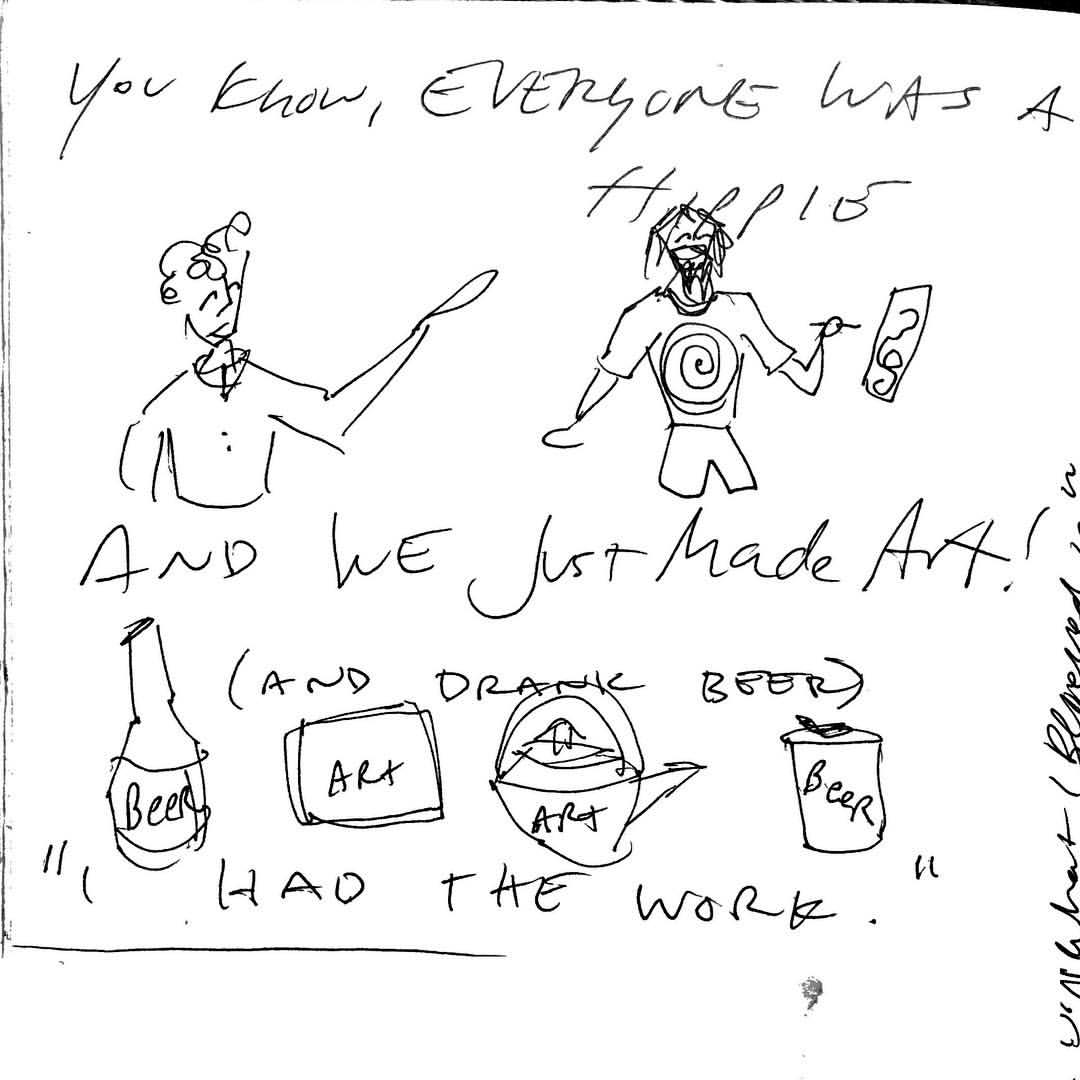 You Know, EVERYONE WAS A
HIPPIE
AND WE JUST Made Art!
(AND DRANK BEER)
BeeR
ARt
ARt
BeeR
"I HAD THE WORK."